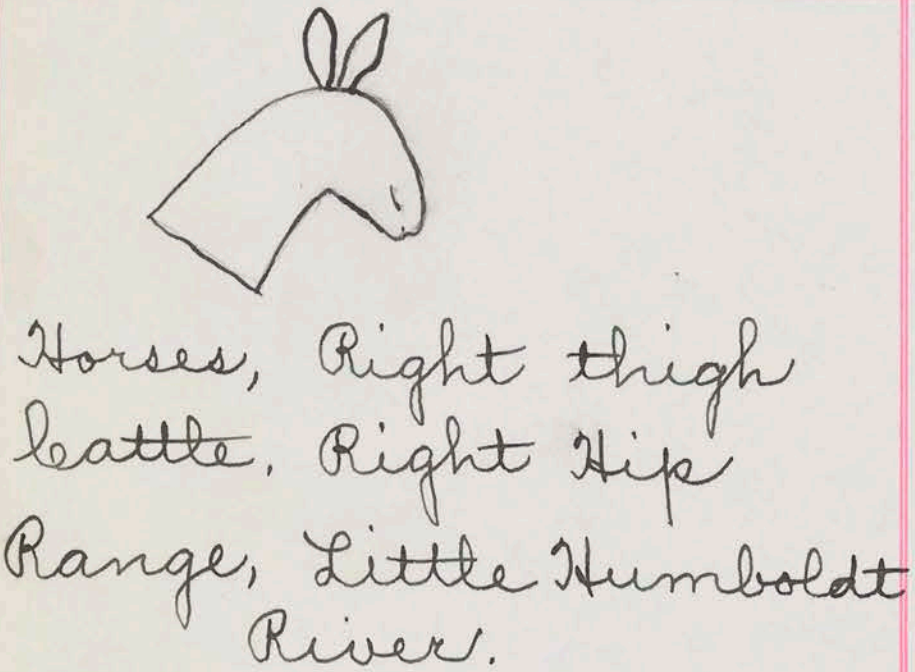 Horses, Right thigh
Cattle, Right Hip
Range, Little Humboldt
River.